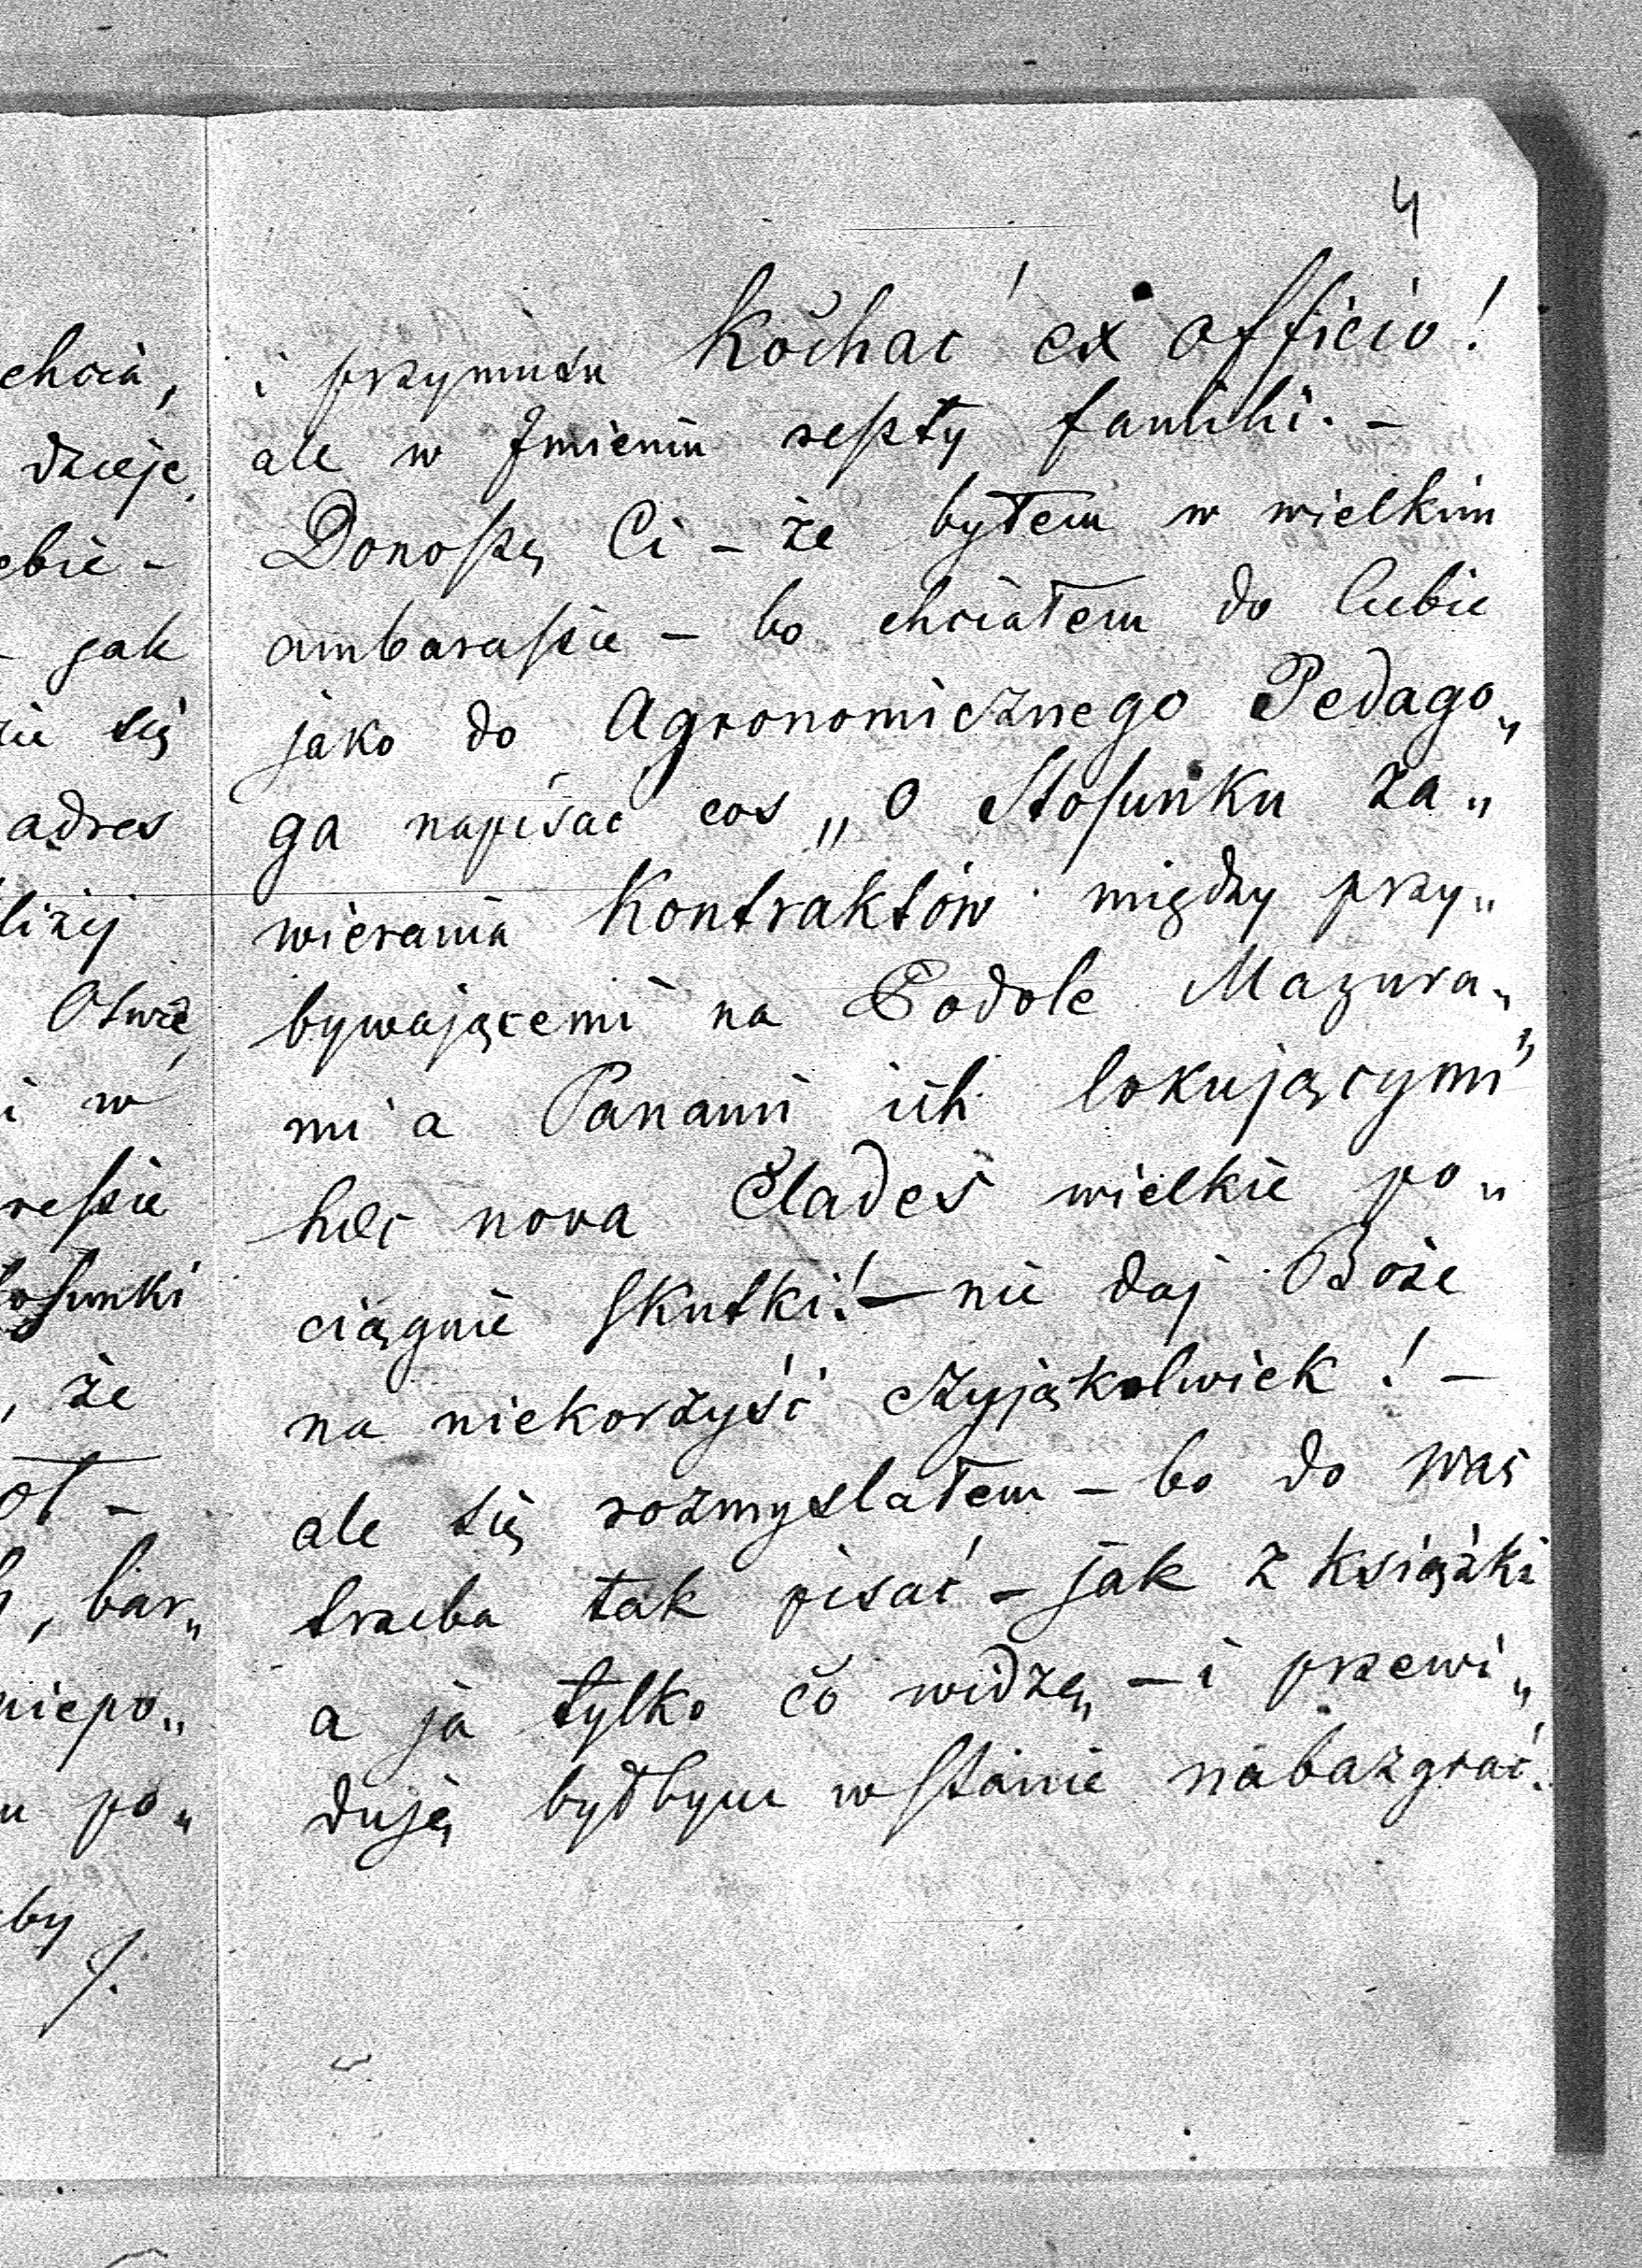 chcia,
dzieje
ebie -
- jak
zie się
adres
liżej
Oświe,
i w
reſzie
toſunki
, że
ot -
, bar„
niepo„
u po„
by
/.
4
i przymusu Kochać ex officio!
ale w Imieniu reſzty familii. -
Donoſzę Ci - że byłem w wielkim
ambaraſzie - bo chciałem do Ciebie
jako do Agronomicznego Pedago„
ga napisać cos „O Stoſunku za„
wierania Kontraktów między przy„
bywającemi na Podole Mazura„
mi a Panami ich lokującymi"
hæc nova Clades wielkie po„
ciągnie ſkutki! - nie daj Boże
na niekorzyść czyjąkolwiek! -
ale się rozmyslałem - bo do was
trzeba tak pisać - jak z książki
a ja tylko co widzę - i przewi„
duję byłbym w ſtanie nabazgrać.